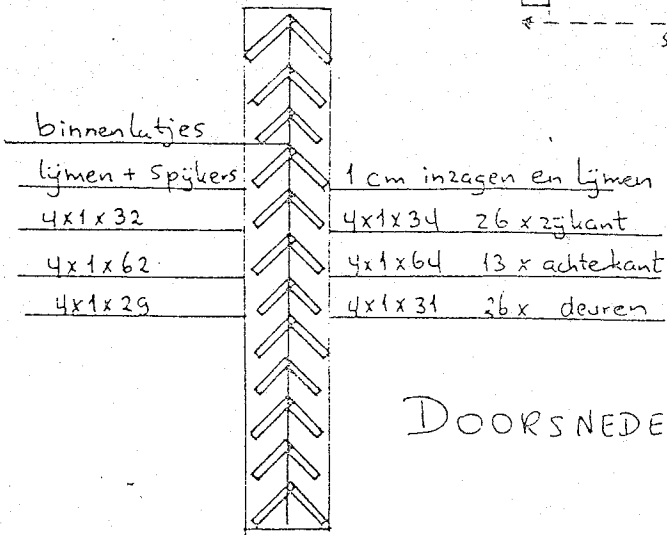 s
binnenlatjes
lijmen + Spijkers
4x1x32
4x1x62
4x1x29
1 cm inzagen en lijmen
4x1x34 26 x zijkant
4x1x64 13 x achterkant
4x1x31 26 x deuren
DOORSNEDE